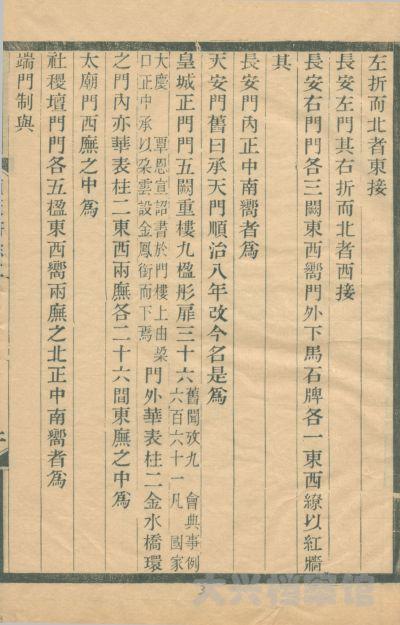 左折而北者東接
長安左門其右折而北者西接
長安右門門各三闕東西嚮門外下馬石牌各一東西繚以紅牆
其
長安門內正中南嚮者爲
天安門舊曰承天門順治八年改今名是爲
皇城正門門五闕重樓九楹彤扉三十六
舊聞攷九 會典事例
六百六十一凡 國家
大慶 覃恩宣詔書於門樓上由垛
口正中承以朵雲設金鳳銜而下焉
門外華表柱二金水橋環
之門內亦華表柱二東西兩廡各二十六間東廡之中爲
太廟門西廡之中爲
社稷壇門門各五楹東西嚮兩廡之北正中南嚮者爲
端門制與
3
大兴档案馆